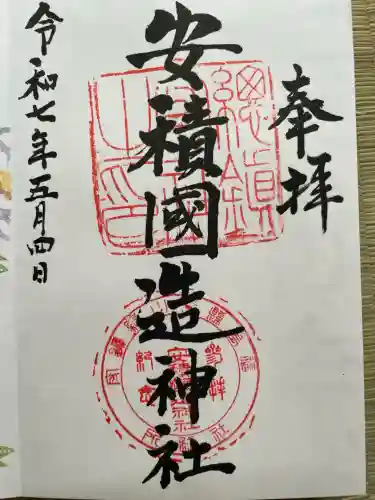 奉拝
安積國造神社
令和七年五月四日